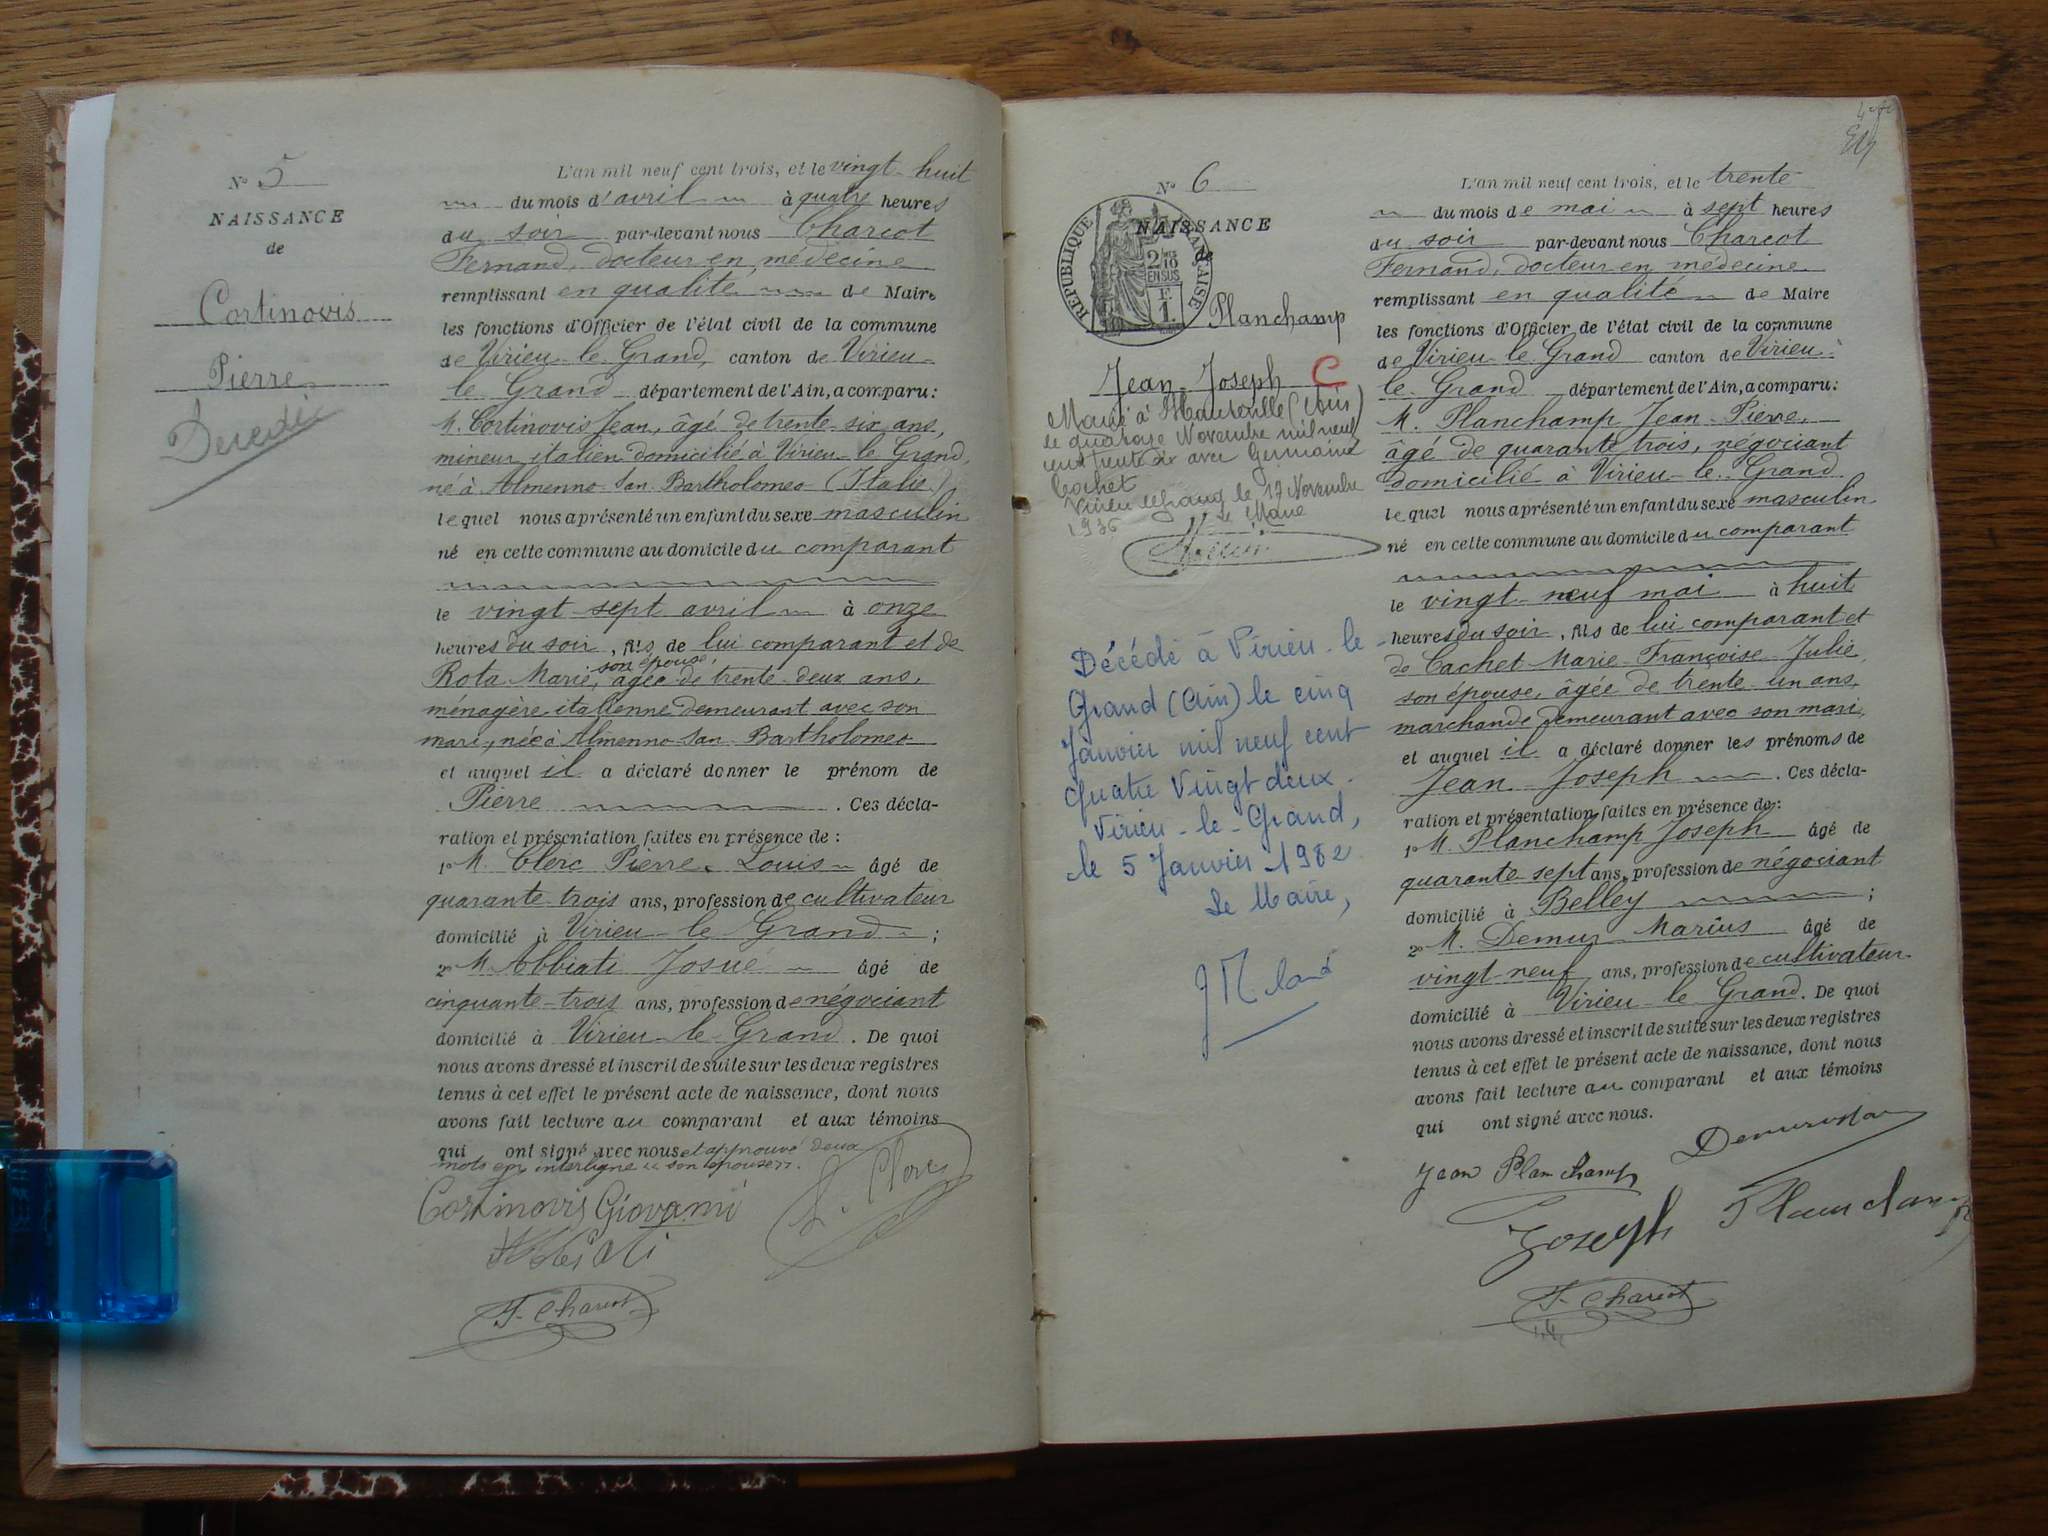 N° 5
NAISSANCE
de
Cortinovis
Pierre
Décédé
L'an mil neuf cent trois, et le vingt-huit
du mois d'avril à quatre heures
du soir par-devant nous Charcot
Fernand, docteur en médecine
remplissant en qualité de Maire
les fonctions d'Officier de l'état civil de la commune
de Virieu-le-Grand, canton de Virieu-
le Grand département de l'Ain, a comparu:
M. Cortinovis Jean, âgé de trente-six ans,
mineur italien domicilié à Virieu-le-Grand,
né à Almenno San Bartholomeo (Italie)
lequel nous a présenté un enfant du sexe masculin
né en cette commune au domicile du comparant
le vingt-sept avril à onze
heures du soir, fils de lui comparant et de
son épouse,
Rota Marie, âgée de trente-deux ans,
ménagère italienne demeurant avec son
mari, née à Almenno San Bartholomeo
et auquel il a déclaré donner le prénom de
Pierre . Ces décla-
ration et présentation faites en présence de :
1° M. Clerc Pierre-Louis âgé de
quarante-trois ans, profession de cultivateur
domicilié à Virieu-le-Grand ;
2° M. Abbiati Josué âgé de
cinquante-trois ans, profession de négociant
domicilié à Virieu-le-Grand. De quoi
nous avons dressé et inscrit de suite sur les deux registres
tenus à cet effet le présent acte de naissance, dont nous
avons fait lecture au comparant et aux témoins
qui ont signé avec nous et approuvé deux
mots en interligne "son épouse".
Cortinovis Giovanni
L. Clerc
Abbiati
F. Charcot
N° 6
NAISSANCE
de
REPUBLIQUE FRANÇAISE
2/10
EN SUS
F.
1.
Planchamp
Jean-Joseph C
Marié à Hauteville (Ain)
le quatorze Novembre mil neuf
cent trente six avec Germaine
Cochet
Virieu le Grand le 17 Novembre
1936 Le Maire
Décédé à Virieu-le-
Grand (Ain) le cinq
Janvier mil neuf cent
quatre Vingt deux.
Virieu-le-Grand,
le 5 Janvier 1982
Le Maire,
L'an mil neuf cent trois, et le trente
du mois de mai à sept heures
du soir par-devant nous Charcot
Fernand, docteur en médecine
remplissant en qualité de Maire
les fonctions d'Officier de l'état civil de la commune
de Virieu-le-Grand canton de Virieu-
le Grand département de l'Ain, a comparu:
M. Planchamp Jean-Pierre,
âgé de quarante-trois, négociant
domicilié à Virieu-le-Grand
lequel nous a présenté un enfant du sexe masculin
né en cette commune au domicile du comparant
le vingt-neuf mai à huit
heures du soir, fils de lui comparant et
de Cachet Marie-Françoise-Julie
son épouse, âgée de trente-un ans,
marchande demeurant avec son mari,
et auquel il a déclaré donner les prénoms de
Jean Joseph . Ces décla-
ration et présentation faites en présence de:
1° M. Planchamp Joseph âgé de
quarante-sept ans, profession de négociant
domicilié à Belley ;
2° M. Demur Marius âgé de
vingt-neuf ans, profession de cultivateur
domicilié à Virieu-le-Grand. De quoi
nous avons dressé et inscrit de suite sur les deux registres
tenus à cet effet le présent acte de naissance, dont nous
avons fait lecture au comparant et aux témoins
qui ont signé avec nous.
Jean Planchamp
Joseph Planchamp
F. Charcot